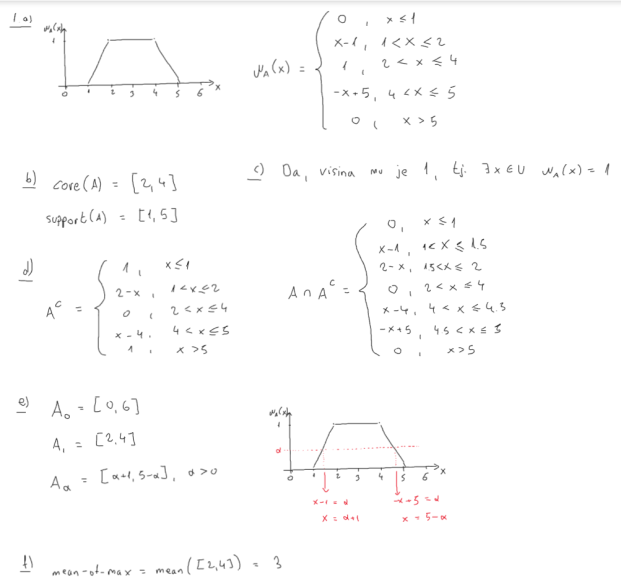 1 a)
μA(x)
1
0 1 2 3 4 5 6 x
μA(x) = { 0 , x ≤ 1
x-1 , 1 < x ≤ 2
1 , 2 < x ≤ 4
-x+5 , 4 < x ≤ 5
0 , x > 5
b) core(A) = [2,4]
support(A) = [1,5]
c) Da, visina mu je 1, tj. ∃x∈U μA(x) = 1
d) A^C = { 1 , x ≤ 1
2-x , 1 < x ≤ 2
0 , 2 < x ≤ 4
x-4 , 4 < x ≤ 5
1 , x > 5
A ∩ A^C = { 0 , x ≤ 1
x-1 , 1 < x ≤ 1.5
2-x , 1.5 < x ≤ 2
0 , 2 < x ≤ 4
x-4 , 4 < x ≤ 4.5
-x+5 , 4.5 < x ≤ 5
0 , x > 5
e) A0 = [0,6]
A1 = [2,4]
Aα = [α+1, 5-α] , α > 0
μA(x)
1
α
0 1 2 3 4 5 6 x
x-1 = α
x = α+1
-x+5 = α
x = 5-α
f) mean-of-max = mean([2,4]) = 3